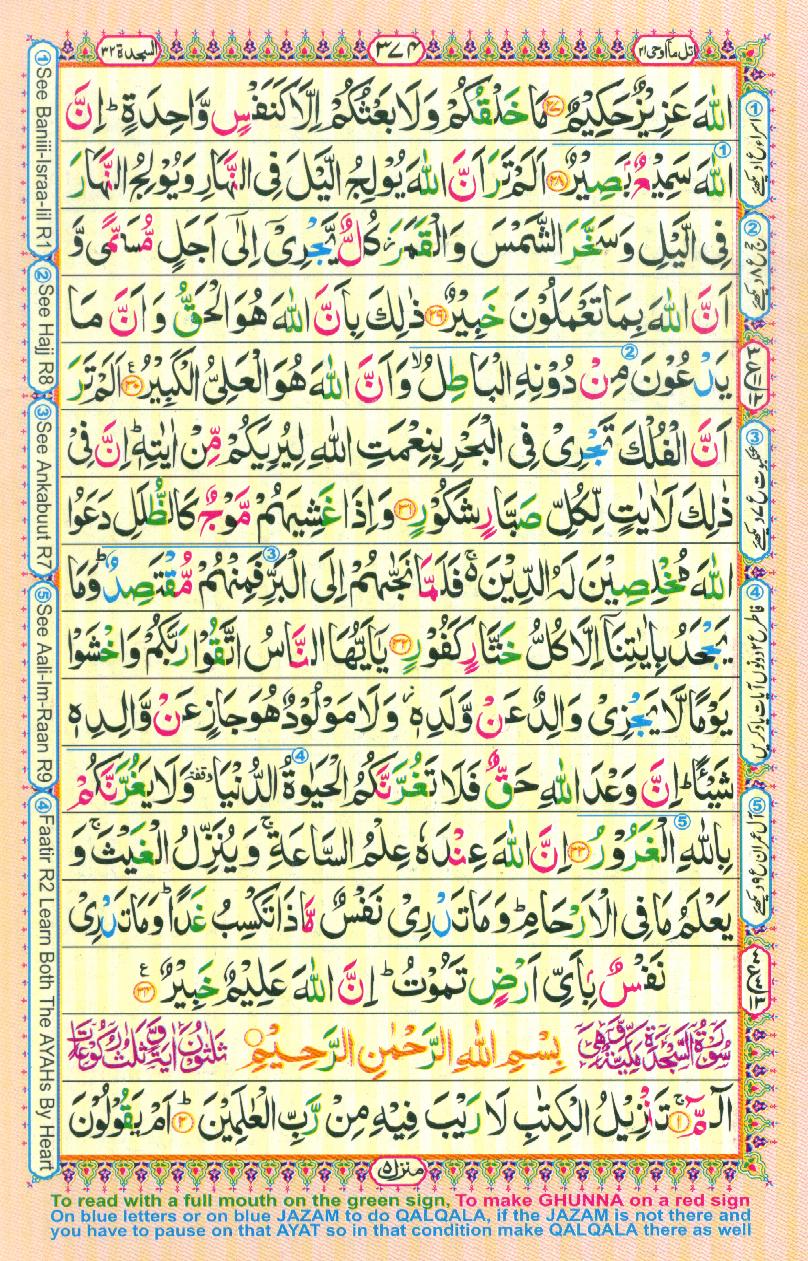 السجدة ٣٢
٣٧٤
اتل ما اوحی ٢١
اللّٰهَ عَزِیْزٌ حَكِیْمٌ ﴿٢٧﴾ مَا خَلْقُكُمْ وَلَا بَعْثُكُمْ اِلَّا كَنَفْسٍ وَّاحِدَةٍ ؕ اِنَّ
اللّٰهَ سَمِیْعٌۢ بَصِیْرٌ ﴿٢٨﴾ اَلَمْ تَرَ اَنَّ اللّٰهَ یُوْلِجُ الَّیْلَ فِی النَّهَارِ وَیُوْلِجُ النَّهَارَ
فِی الَّیْلِ وَسَخَّرَ الشَّمْسَ وَالْقَمَرَ ؗ كُلٌّ یَّجْرِیْۤ اِلٰۤی اَجَلٍ مُّسَمًّی وَّ
اَنَّ اللّٰهَ بِمَا تَعْمَلُوْنَ خَبِیْرٌ ﴿٢٩﴾ ذٰلِكَ بِاَنَّ اللّٰهَ هُوَ الْحَقُّ وَ اَنَّ مَا
یَدْعُوْنَ مِنْ دُوْنِهِ الْبَاطِلُ ۙ وَ اَنَّ اللّٰهَ هُوَ الْعَلِیُّ الْكَبِیْرُ ﴿٣٠﴾ اَلَمْ تَرَ
اَنَّ الْفُلْكَ تَجْرِیْ فِی الْبَحْرِ بِنِعْمَتِ اللّٰهِ لِیُرِیَكُمْ مِّنْ اٰیٰتِهٖ ؕ اِنَّ فِیْ
ذٰلِكَ لَاٰیٰتٍ لِّكُلِّ صَبَّارٍ شَكُوْرٍ ﴿٣١﴾ وَ اِذَا غَشِیَهُمْ مَّوْجٌ كَالظُّلَلِ دَعَوُا
اللّٰهَ مُخْلِصِیْنَ لَهُ الدِّیْنَ ۚ۬ فَلَمَّا نَجّٰىهُمْ اِلَی الْبَرِّ فَمِنْهُمْ مُّقْتَصِدٌ ؕ وَمَا
یَجْحَدُ بِاٰیٰتِنَاۤ اِلَّا كُلُّ خَتَّارٍ كَفُوْرٍ ﴿٣٢﴾ یٰۤاَیُّهَا النَّاسُ اتَّقُوْا رَبَّكُمْ وَاخْشَوْا
یَوْمًا لَّا یَجْزِیْ وَالِدٌ عَنْ وَّلَدِهٖ ؗ وَلَا مَوْلُوْدٌ هُوَ جَازٍ عَنْ وَّالِدِهٖ
شَیْـًٔا ؕ اِنَّ وَعْدَ اللّٰهِ حَقٌّ فَلَا تَغُرَّنَّكُمُ الْحَیٰوةُ الدُّنْیَا وقفة وَلَا یَغُرَّنَّكُمْ
بِاللّٰهِ الْغَرُوْرُ ﴿٣٣﴾ اِنَّ اللّٰهَ عِنْدَهٗ عِلْمُ السَّاعَةِ ۚ وَیُنَزِّلُ الْغَیْثَ ۚ وَ
یَعْلَمُ مَا فِی الْاَرْحَامِ ؕ وَمَا تَدْرِیْ نَفْسٌ مَّا ذَا تَكْسِبُ غَدًا ؕ وَمَا تَدْرِیْ
نَفْسٌۢ بِاَیِّ اَرْضٍ تَمُوْتُ ؕ اِنَّ اللّٰهَ عَلِیْمٌ خَبِیْرٌ ﴿٣٤﴾ ع
سُوْرَةُ السَّجْدَةِ مَكِّیَّةٌ وَّهِیَ بِسْمِ اللّٰهِ الرَّحْمٰنِ الرَّحِیْمِ ثَلٰثُوْنَ اٰیَةً وَّثَلٰثُ رُكُوْعَاتٍ
الٓمّٓ ﴿١﴾ تَنْزِیْلُ الْكِتٰبِ لَا رَیْبَ فِیْهِ مِنْ رَّبِّ الْعٰلَمِیْنَ ﴿٢﴾ اَمْ یَقُوْلُوْنَ
منزل ٥
① See Baniii-Israa-Iil R1
② See Hajj R8
③ See Ankabuut R7
⑤ See Aali-Im-Raan R9
④ Faatir R2 Learn Both The AYAHs By Heart
To read with a full mouth on the green sign, To make GHUNNA on a red sign
On blue letters or on blue JAZAM to do QALQALA, if the JAZAM is not there and
you have to pause on that AYAT so in that condition make QALQALA there as well